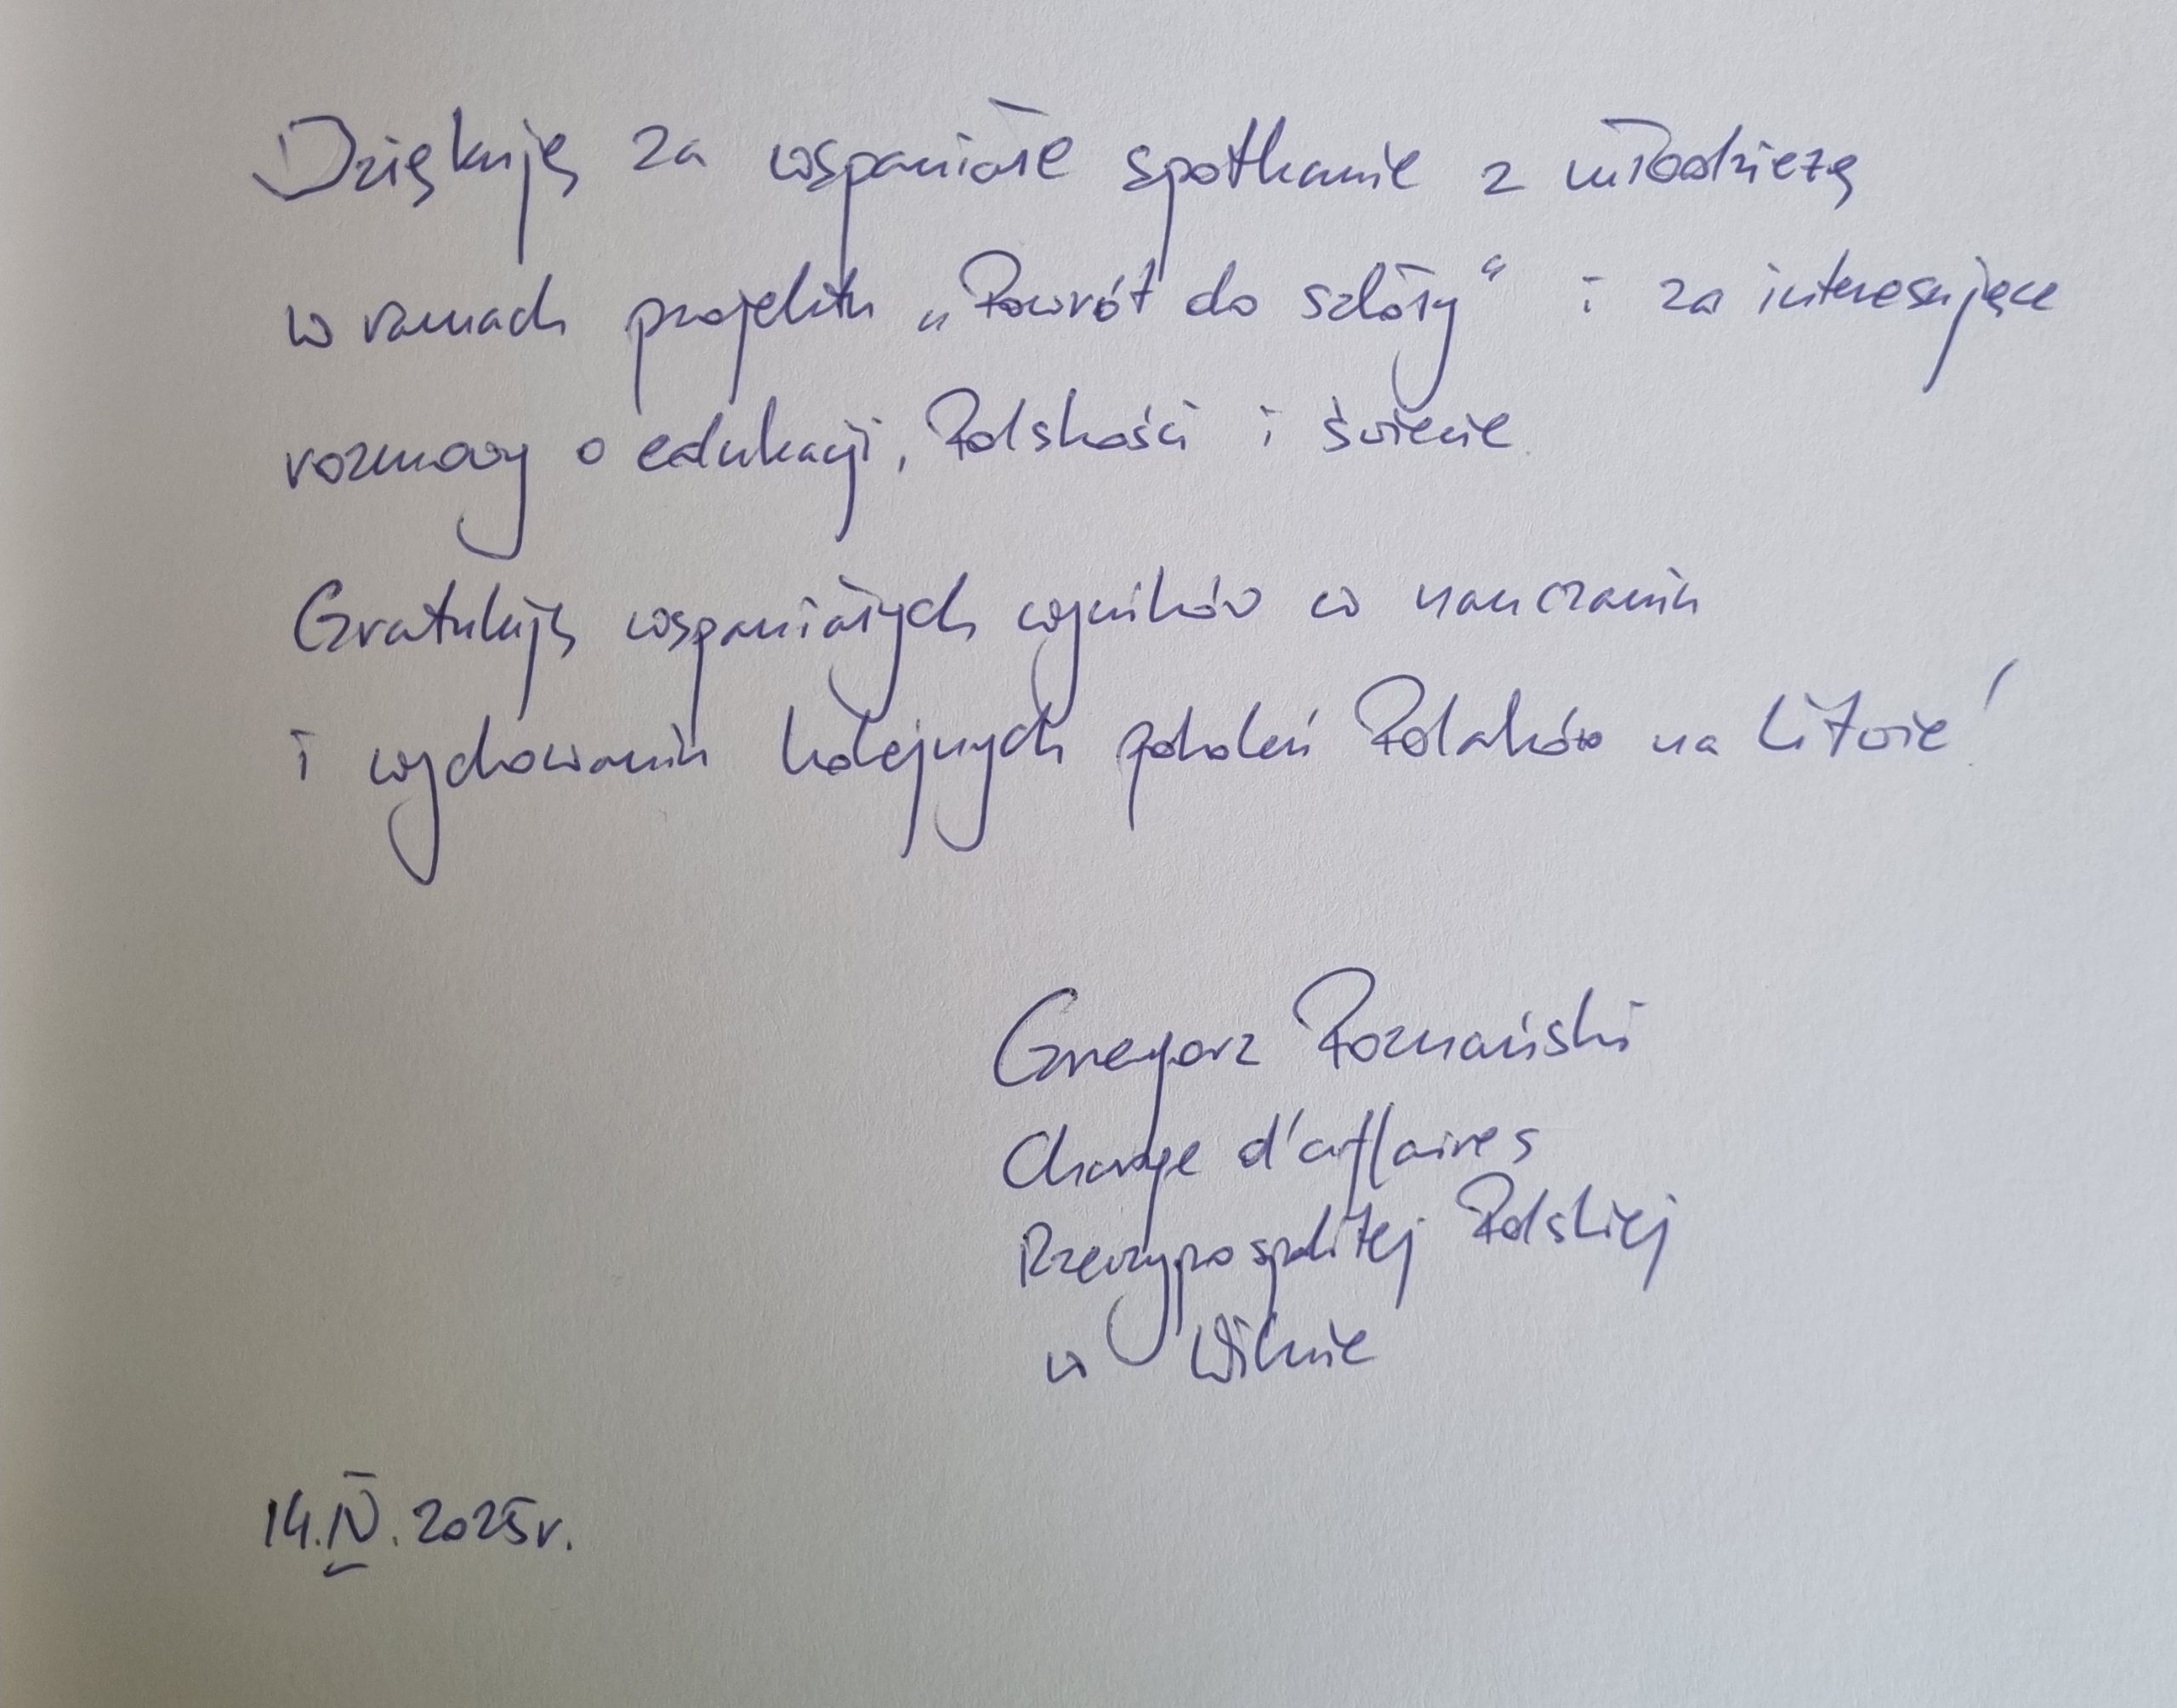 Dziękuję za wspaniałe spotkanie z młodzieżą
w ramach projektu „Powrót do szkoły“ i za interesujące
rozmowy o edukacji, Polskości i świecie.
Gratuluję wspaniałych wyników w nauczaniu
i wychowaniu kolejnych pokoleń Polaków na Litwie!
Grzegorz Poznański
Charge d'affaires
Rzeczypospolitej Polskiej
w Wilnie
14.IV.2025r.